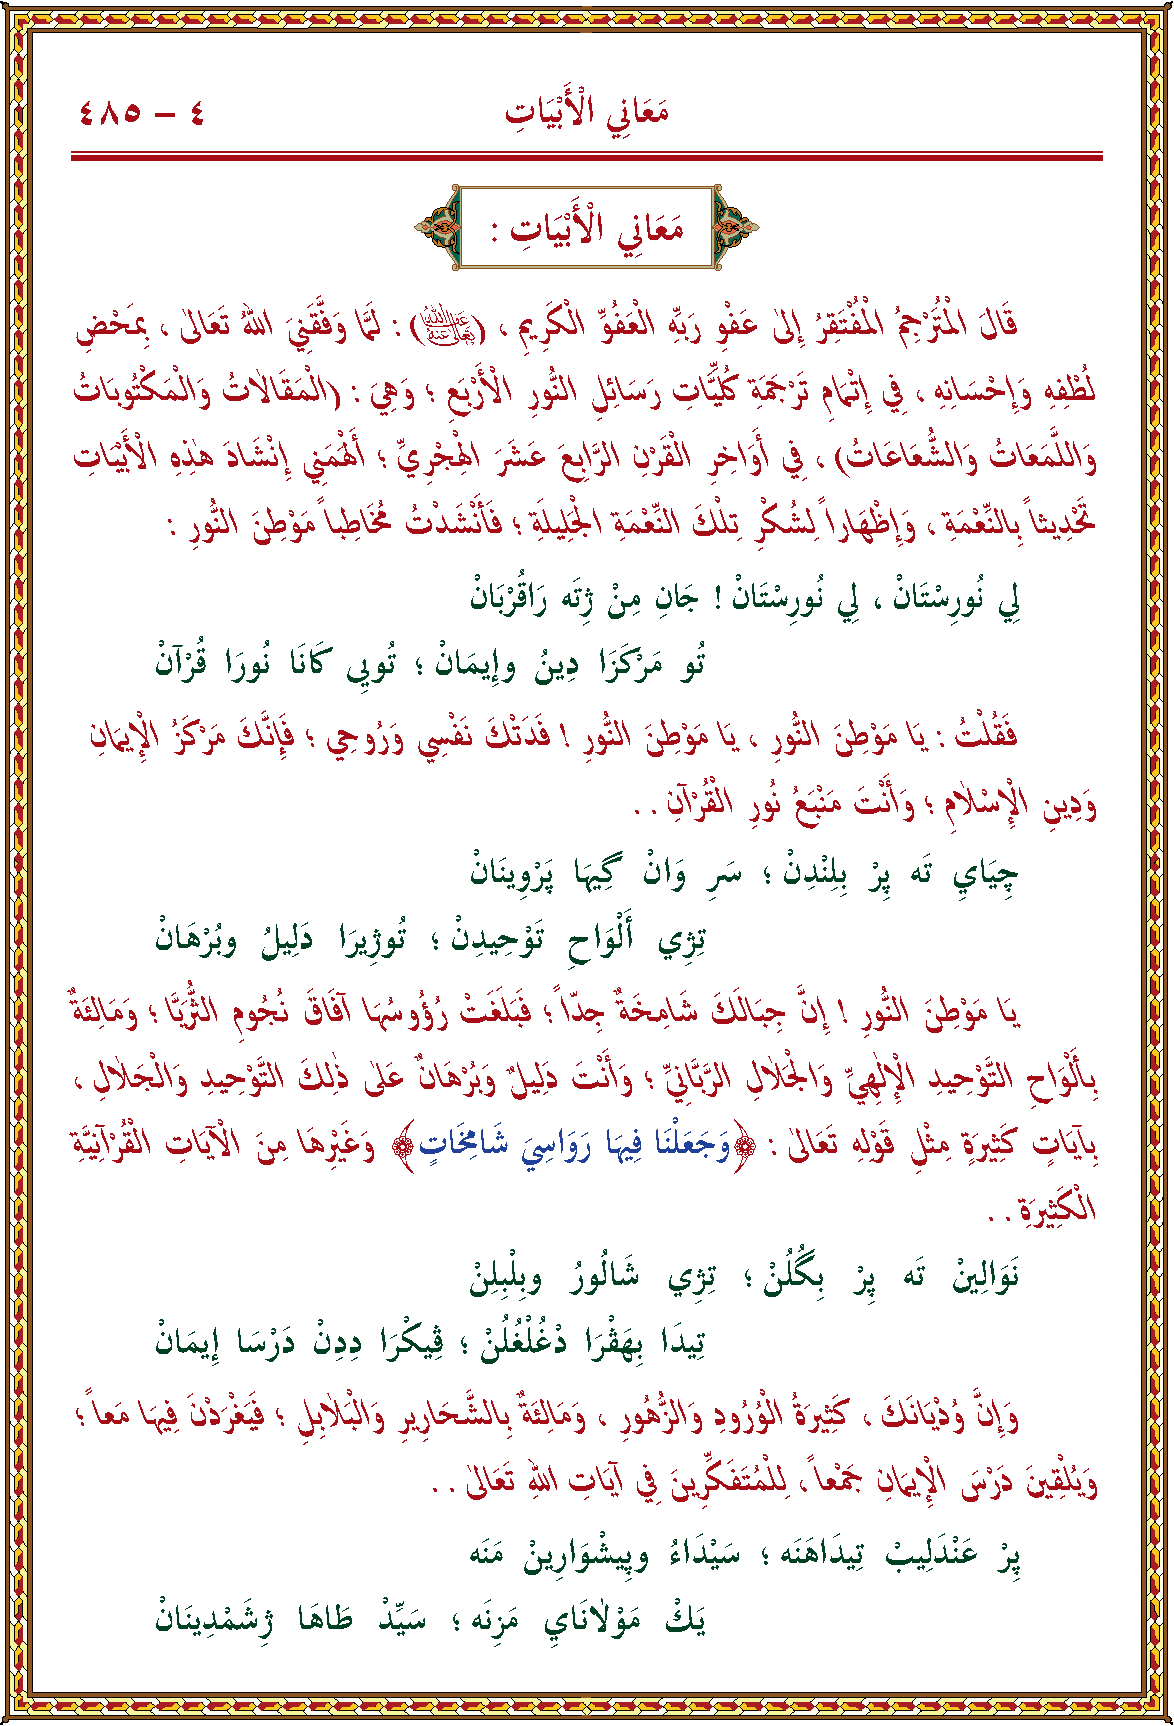 مَعَانِي الْأَبْيَاتِ ٤ – ٤٨٥
مَعَانِي الْأَبْيَاتِ :
قَالَ الْمُتَرْجِمُ الْمُفْتَقِرُ إِلىٰ عَفْوِ رَبِّهِ الْعَفُوِّ الْكَرِيمِ ، (عَفَا اللهُ تَعَالىٰ عَنْهُ) : لَمَّا وَفَّقَنِيَ اللهُ تَعَالىٰ ، بِمَحْضِ
لُطْفِهِ وَإِحْسَانِهِ ، فِي إِتْمَامِ تَرْجَمَةِ كُلِّيَّاتِ رَسَائِلِ النُّورِ الْأَرْبَعِ ؛ وَهِيَ : (الْمَقَالَاتُ وَالْمَكْتُوبَاتُ
وَاللَّمَعَاتُ وَالشُّعَاعَاتُ) ، فِي أَوَاخِرِ الْقَرْنِ الرَّابِعَ عَشَرَ الْهِجْرِيِّ ؛ أَلْهَمَنِي إِنْشَادَ هٰذِهِ الْأَبْيَاتِ
تَحْدِيثاً بِالنِّعْمَةِ ، وَإِظْهَاراً لِشُكْرِ تِلْكَ النِّعْمَةِ الْجَلِيلَةِ ؛ فَأَنْشَدْتُ مُخَاطِباً مَوْطِنَ النُّورِ :
لِي نُورِسْتَانْ ، لِي نُورِسْتَانْ ! جَانِ مِنْ ژِتَه رَاقُرْبَانْ
تُو مَرْكَزَا دِينُ وإِيمَانْ ؛ تُويِى كَانَا نُورَا قُرْآنْ
فَقُلْتُ : يَا مَوْطِنَ النُّورِ ، يَا مَوْطِنَ النُّورِ ! فَدَتْكَ نَفْسِي وَرُوحِي ؛ فَإِنَّكَ مَرْكَزُ الْإِيمَانِ
وَدِينِ الْإِسْلَامِ ؛ وَأَنْتَ مَنْبَعُ نُورِ الْقُرْآنِ . .
چِيَايِي تَه پِرْ بِلِنْدِنْ ؛ سَرِ وَانْ گِيهَا پَرْوِينَانْ
تِژِي أَلْوَاحِ تَوْحِيدِنْ ؛ تُوژِيرَا دَلِيلُ وبُرْهَانْ
يَا مَوْطِنَ النُّورِ ! إِنَّ جِبَالَكَ شَامِخَةٌ جِدّاً ؛ فَبَلَغَتْ رُؤُوسُهَا آفَاقَ نُجُومِ الثُّرَيَّا ؛ وَمَالِئَةٌ
بِأَلْوَاحِ التَّوْحِيدِ الْإِلٰهِيِّ وَالْجَلَالِ الرَّبَّانِيِّ ؛ وَأَنْتَ دَلِيلٌ وَبُرْهَانٌ عَلىٰ ذٰلِكَ التَّوْحِيدِ وَالْجَلَالِ ،
بِآيَاتٍ كَثِيرَةٍ مِثْلِ قَوْلِهِ تَعَالىٰ : ﴿وَجَعَلْنَا فِيهَا رَوَاسِيَ شَامِخَاتٍ﴾ وَغَيْرِهَا مِنَ الْآيَاتِ الْقُرْآنِيَّةِ
الْكَثِيرَةِ . .
نَوَالِينْ تَه پِرْ بِگُلُنْ ؛ تِژِي شَالُورُ وبِلْبِلِنْ
تِيدَا بِهَڤْرَا دْغُلْغُلُنْ ؛ ڤِيكْرَا دِدِنْ دَرْسَا إِيمَانْ
وَإِنَّ وُدْيَانَكَ ، كَثِيرَةُ الْوُرُودِ وَالزُّهُورِ ، وَمَالِئَةٌ بِالشَّحَارِيرِ وَالْبَلَابِلِ ؛ فَيَغْرَدْنَ فِيهَا مَعاً ؛
وَيُلْقِينَ دَرْسَ الْإِيمَانِ جَمْعاً ، لِلْمُتَفَكِّرِينَ فِي آيَاتِ اللهِ تَعَالىٰ . .
پِرْ عَنْدَلِيبْ تِيدَاهَنَه ؛ سَيْدَاءُ وپِيشْوَارِينْ مَنَه
يَكْ مَوْلَانَايِ مَزِنَه ؛ سَيِّدْ طَاهَا ژِشَمْدِينَانْ